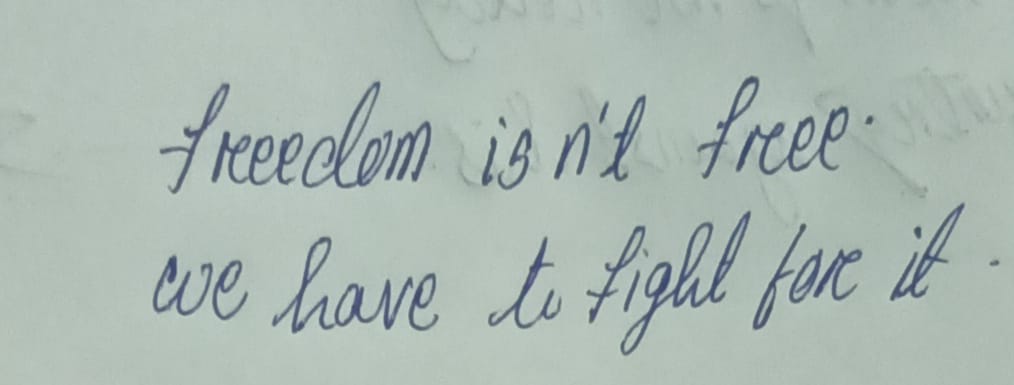 freedom isn't free.
we have to fight fore it.